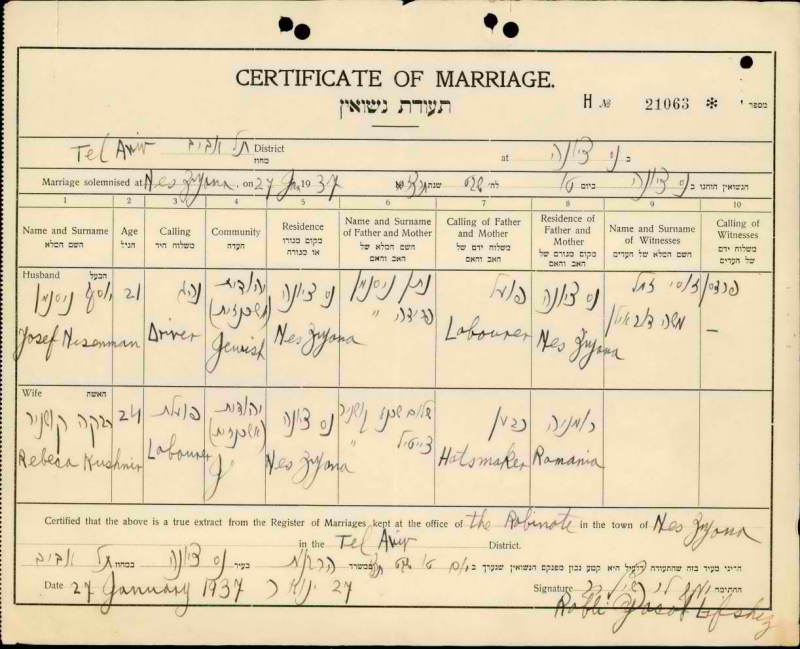 CERTIFICATE OF MARRIAGE.
תעודת נשואין
H № 21063 * מספר
Tel Aviv תל אביב District מחוז at נס ציונה ב
Marriage solemnised at Nes Zyona. on 27 Jan 1937 לח' שבט שנת ביום ט' הנשואין הוחגו ב נס ציונה
1 2 3 4 5 6 7 8 9 10
Name and Surname השם המלא
Age הגיל
Calling משלוח היד
Community העדה
Residence מקום מגורו או מגורה
Name and Surname of Father and Mother השם המלא של האב והאם
Calling of Father and Mother משלוח ידם של האב והאם
Residence of Father and Mother מקום מגורם של האב והאם
Name and Surname of Witnesses השם המלא של העדים
Calling of Witnesses משלוח ידם של העדים
Husband הבעל
יוסף ניסנמן 21 נהג יהודית (אשכנזית) נס ציונה נתן ניסנמן פועל נס ציונה משה פרדסן
Josef Nisenman Driver Jewish Nes Zyona " Labourer Nes Zyona –
Wife האשה
רבקה קושניר 24 פועלת יהודית (אשכנזית) נס ציונה שלום קושניר כבען רומניה
Rebeca Kushnir Labourer J Nes Zyona צייטיל " Hatsmaker Romania
Certified that the above is a true extract from the Register of Marriages kept at the office of the Rabinate in the town of Nes Zyona
in the Tel Aviv District.
הריני מעיד בזה שהתעודה דלעיל היא קטע נכון מפנקס הנשואין שנערך ב יום ט' שבט במשרד הרבנות בעיר נס ציונה במחוז תל אביב
Date 27 January 1937 27 ינואר Signature החתימה
Rabbi Josef Lifshez